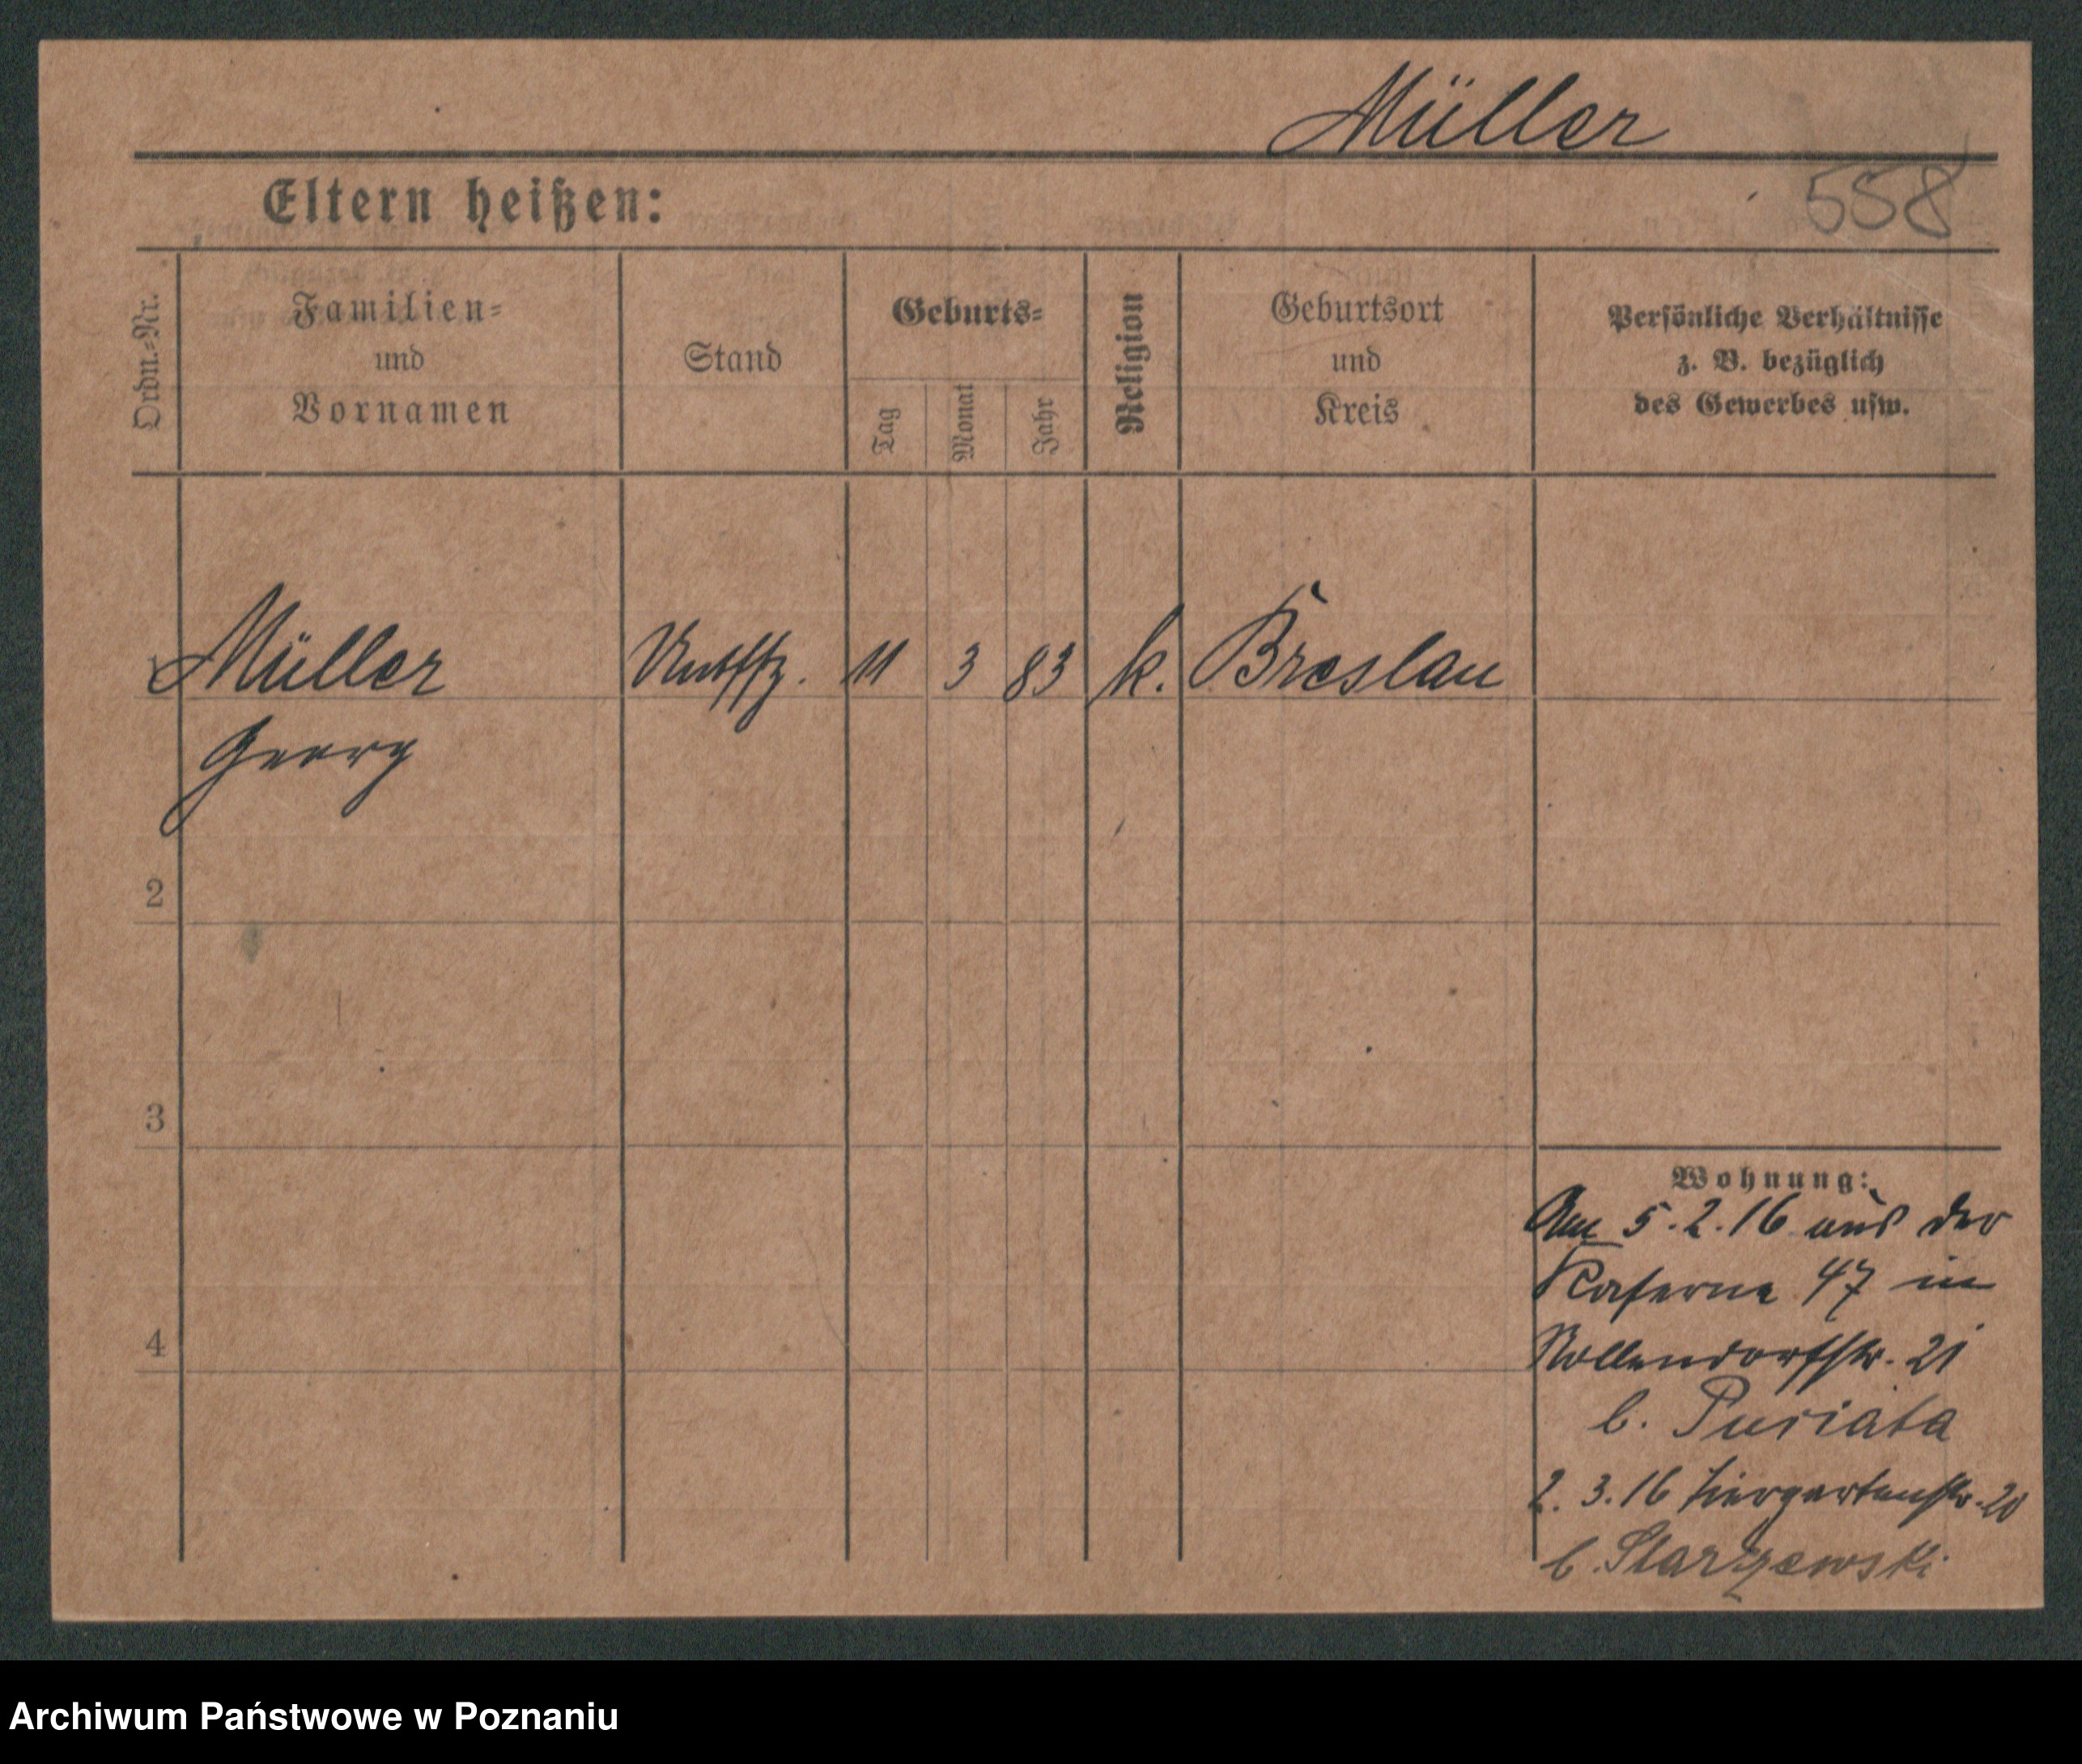 Müller
Eltern heißen:
558
Ordn.-Nr.
Familien-
und
Vornamen
Stand
Geburts-
Tag
Monat
Jahr
Religion
Geburtsort
und
Kreis
Persönliche Verhältnisse
z. B. bezüglich
des Gewerbes usw.
Müller
Untffz. 11 3 83 k. Breslau
Georg
2
3
4
Wohnung:
Am 5.2.16 aus der
Kaserne 47 in
Nollendorfstr. 21
b. Pusiata
2.3.16 Tiergartenstr. 20
b. Starzewski
Archiwum Państwowe w Poznaniu